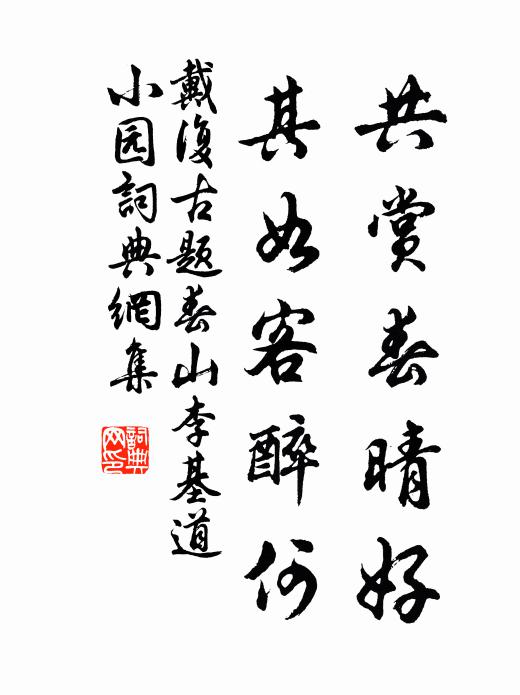 共赏春晴好
其如客醉何
戴復古题春山李基道
小园詞典網集
詞典
网印